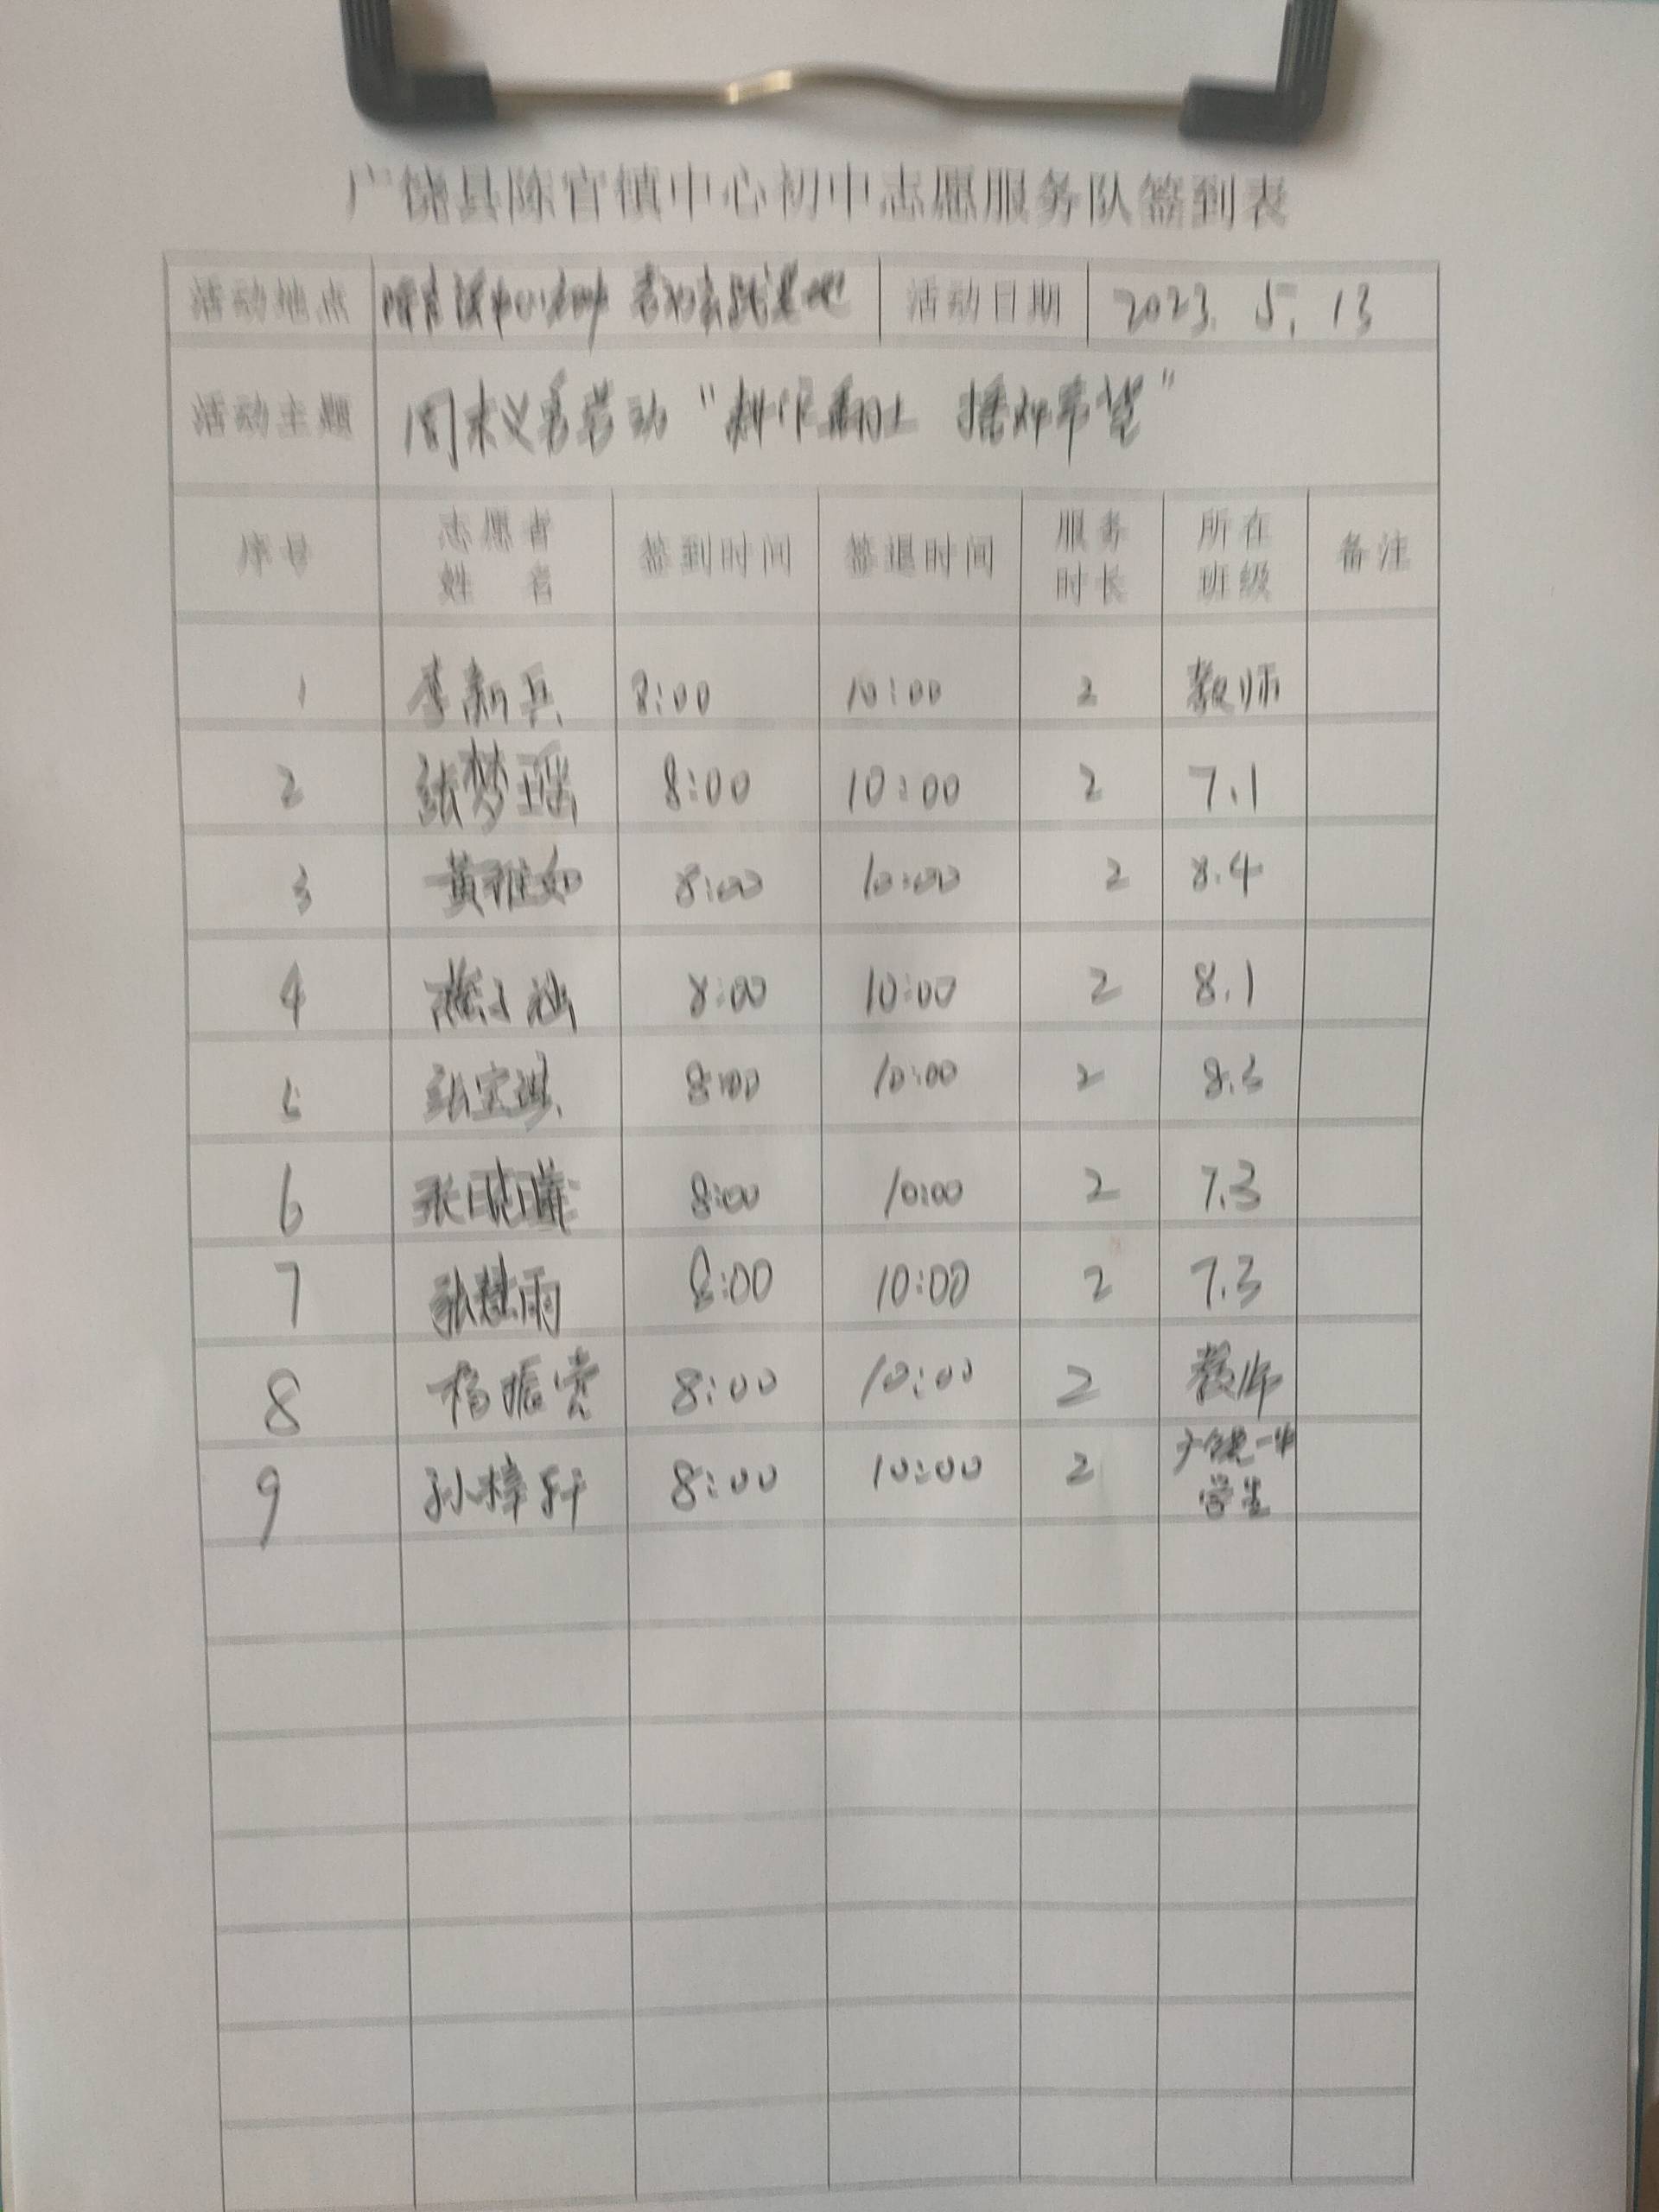 广饶县陈官镇中心初中志愿服务队签到表
活动地点 陈官镇中心初中 劳动实践基地 活动日期 2023. 5. 13
活动主题 周末义务劳动 "耕作翻土 播种希望"
序号 志愿者姓名 签到时间 签退时间 服务时长 所在班级 备注
1 李新兵 8:00 10:00 2 教师
2 张梦瑶 8:00 10:00 2 7.1
3 黄雅如 8:00 10:00 2 8.4
4 8:00 10:00 2 8.1
5 张宝琪 8:00 10:00 2 8.3
6 张 8:00 10:00 2 7.3
7 张慧雨 8:00 10:00 2 7.3
8 杨振 8:00 10:00 2 教师
9 孙梓轩 8:00 10:00 2 广饶一中
学生